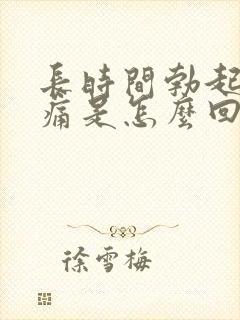 長時間勃起
痛是怎麼回
徐雪梅